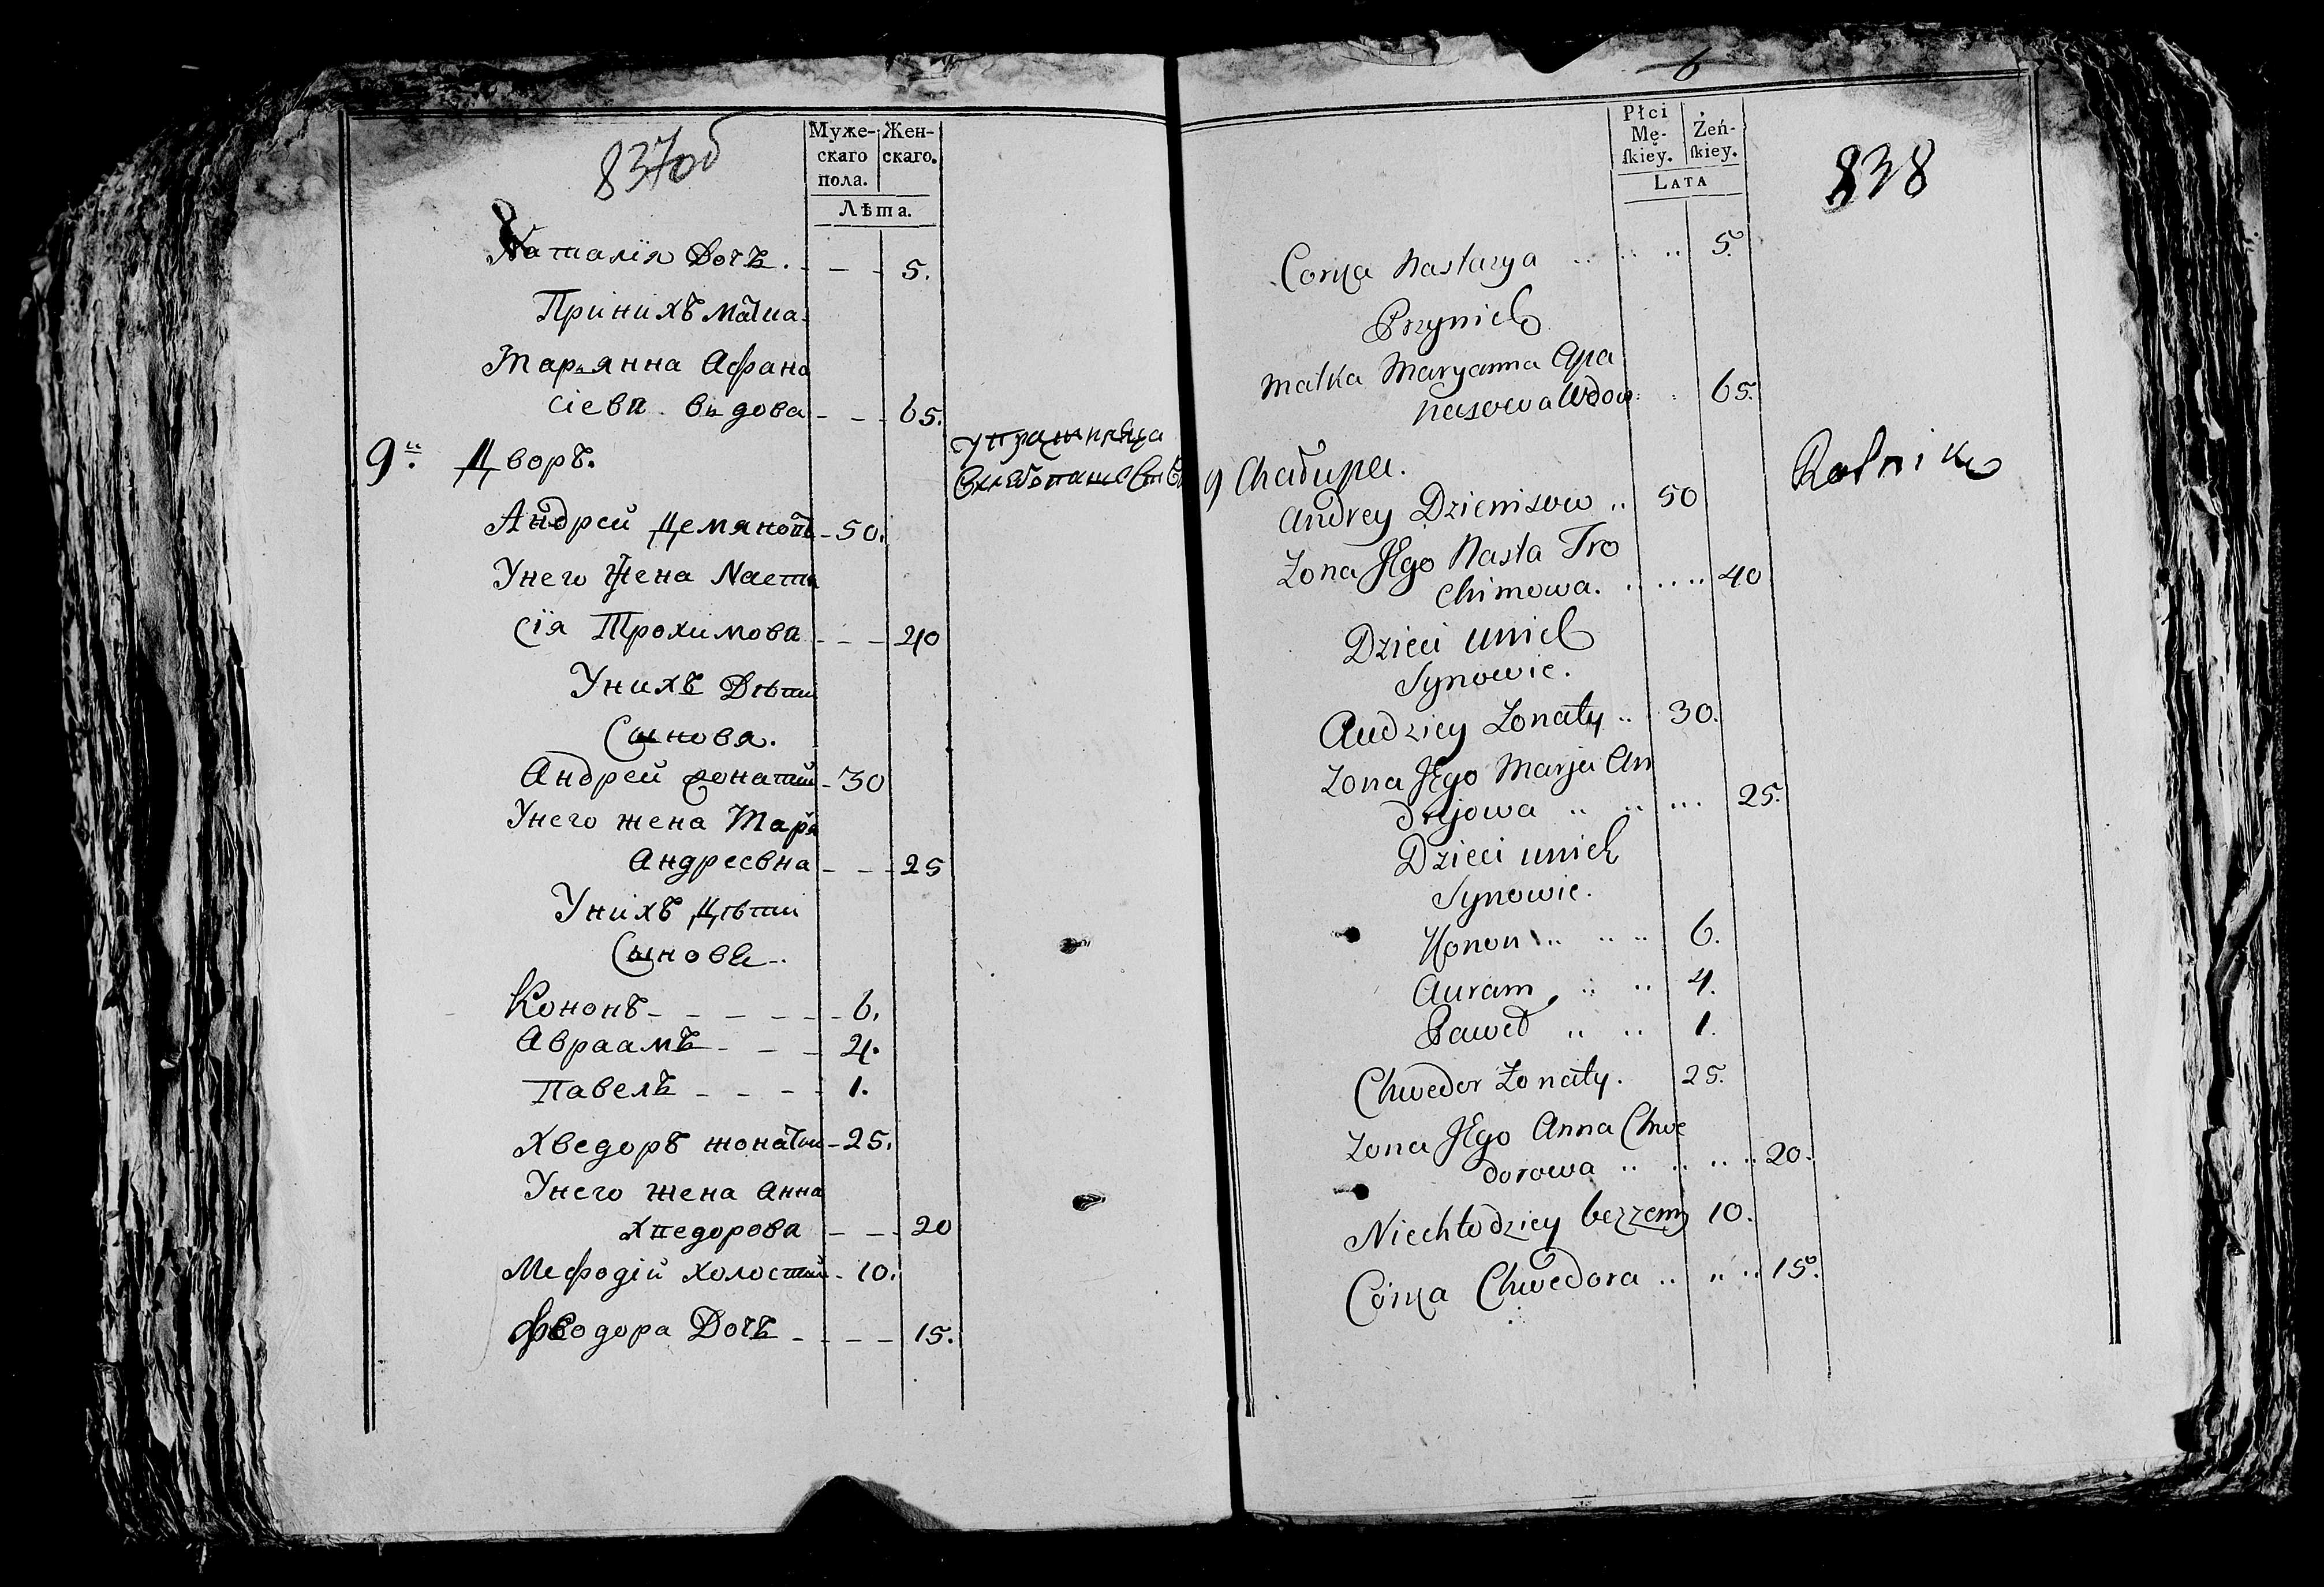 837об
Муже- Жен-
скаго скаго.
пола.
Лѣта.
Наталія Дочь . - - 5.
Принихъ матиа
Маръянна Афана
сіева вдова - - 65.
9й. Дворъ.
упражняца
Андрей Демяновъ - 50.
Унего Жена Наста
сія Трохимова - - - 40
Унихъ Дѣти
Сынова.
Андрей жонатый - 30
Унего жена Марья
Андреевна - - - 25
Унихъ Дѣти
Сынове..
Кононъ - - - - - - - 6.
Авраамъ - - - 4.
Павелъ - - - - 1.
Хведоръ жонатый - 25.
Унего жена Анна
Хведорова - - - 20
Мефодій холостый - 10.
Феодора Дочь - - - - 15.
6
838
Płci
Mę- Żeń-
ſkiey. ſkiey.
LATA
Corka Nastazya .. .. .. 5.
Przynich
Matka Maryanna Apa
nasowa Wdow: . 65.
9 Chałupa. Rolnik
Andrey Dzienisow .. 50
Zona JEgo Nasta Tro
chimowa. . .. .. 40
Dzieci unich
Synowie.
Audziey Zonaty .. 30.
Zona JEgo Marja An
drejowa .. .. ... 25.
Dzieci unich
Synowie.
Konon .. .. .. 6.
Auram .. .. 4.
Paweł .. .. 1.
Chwedor Zonaty. 25.
Zona JEgo Anna Chwe
dorowa .. .. .. .. 20.
Niechłodziey bezzem 10.
Córka Chwedora .. .. .. 15.